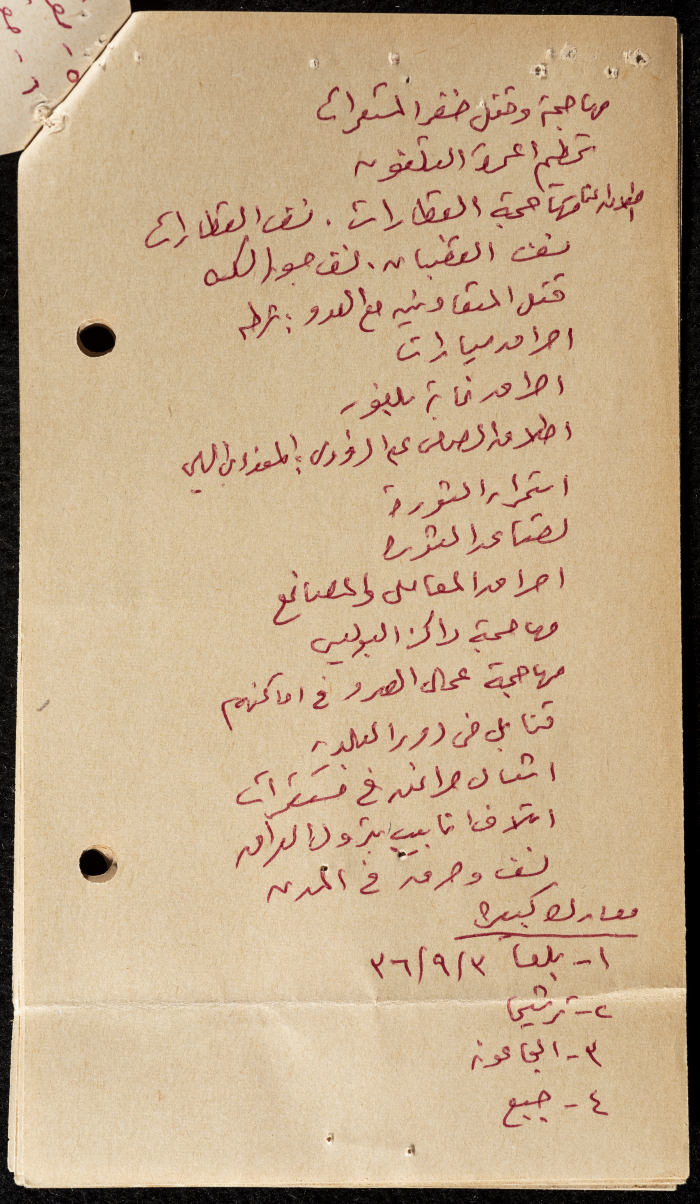 مهاجمة وقتل خفر المستعمرات
تحطيم اعمدة التلفون
مهاجمة القطارات . نسف القطارات
نسف القضبان . نسف جسور السكة
قتل المتعاونين مع العدو : شرطه
احراق سيارات
احراق غابة بلفور
اطلاق الرصاص على
استمرار الثورة
تصاعد الثورة
احراق المعامل والمصانع
مهاجمة مراكز البوليس
مهاجمة عمال العدو في اماكنهم
قنابل في دور البلدية
اشعال حرائق في مستعمرات
اتلاف انابيب بترول العراق
نسف وحرق في المدن
معارك كبيرة
١- بلعا ٣٦/٩/٣
٢- ترشيحا
٣- الجاعونه
٤- جبع